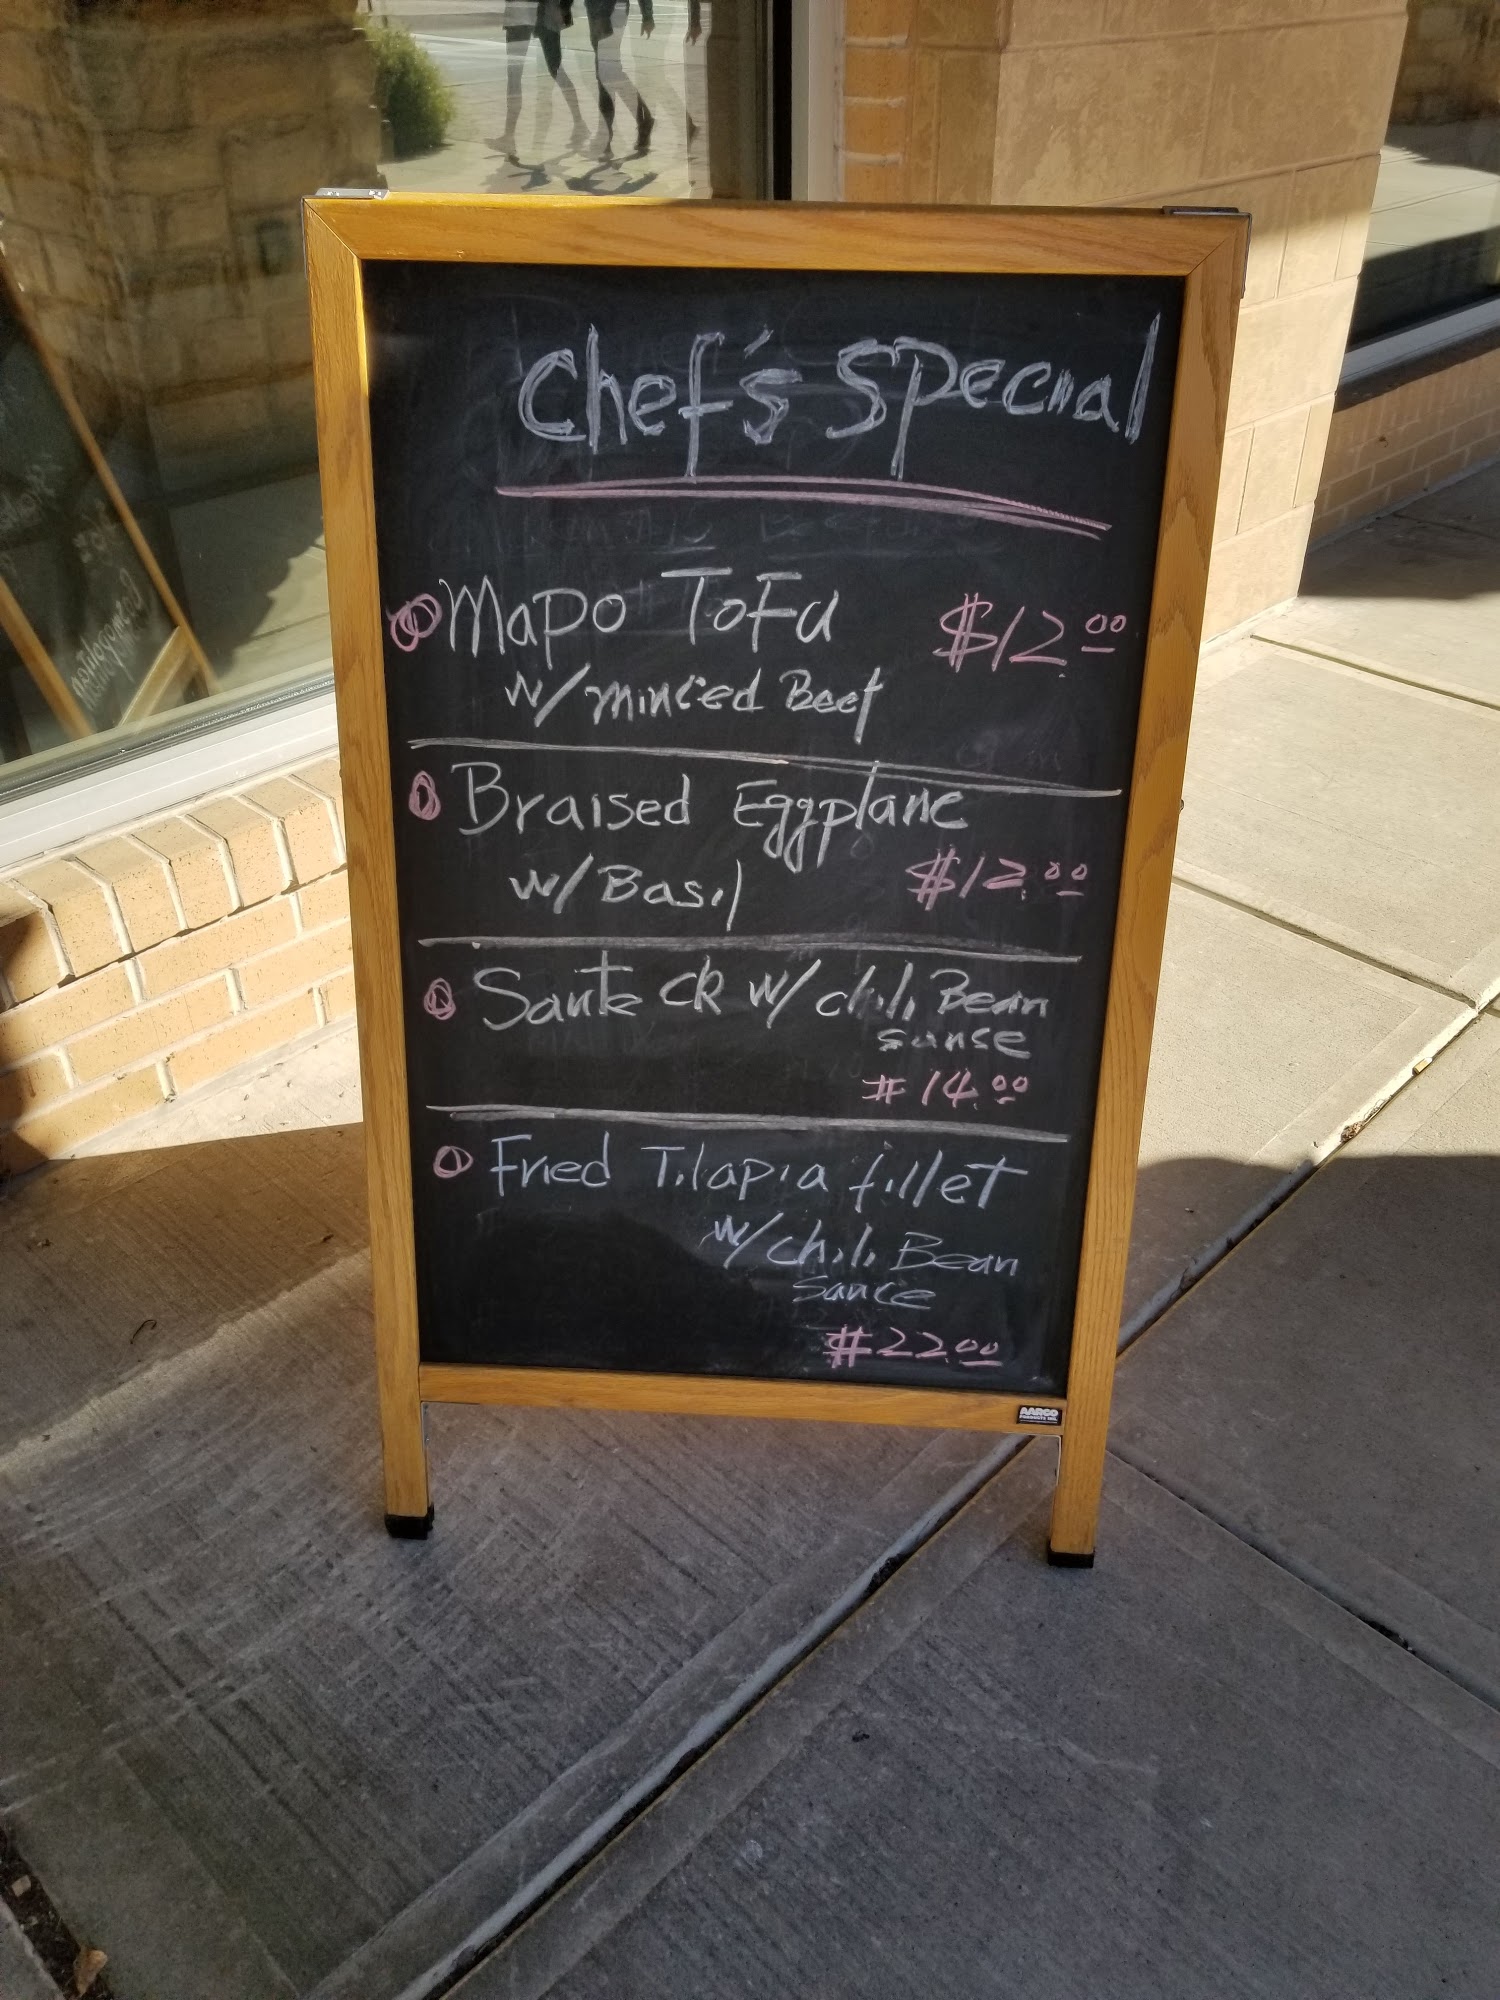 Chef's Special
Mapo ToFu $12.00
w/ minced Beef
Braised Eggplane
w/ Basil $12.00
Saute ck w/ chili Bean
sause
$14.00
Fried Tilapia fillet
w/ chili Bean
Sauce
$22.00
AARCO
PRODUCTS INC.